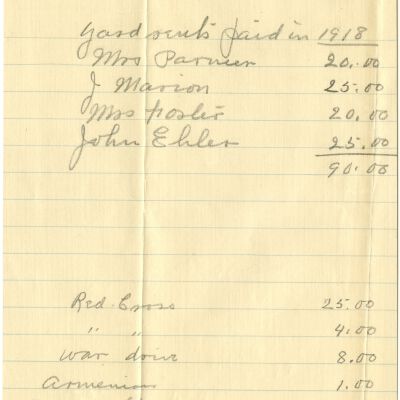 Yard rents paid in 1918
Mrs Parmer 20.00
J Marion 25.00
Mrs Foster 20.00
John Ehler 25.00
90.00
Red Cross 25.00
" " 4.00
War drive 8.00
Armenian 1.00